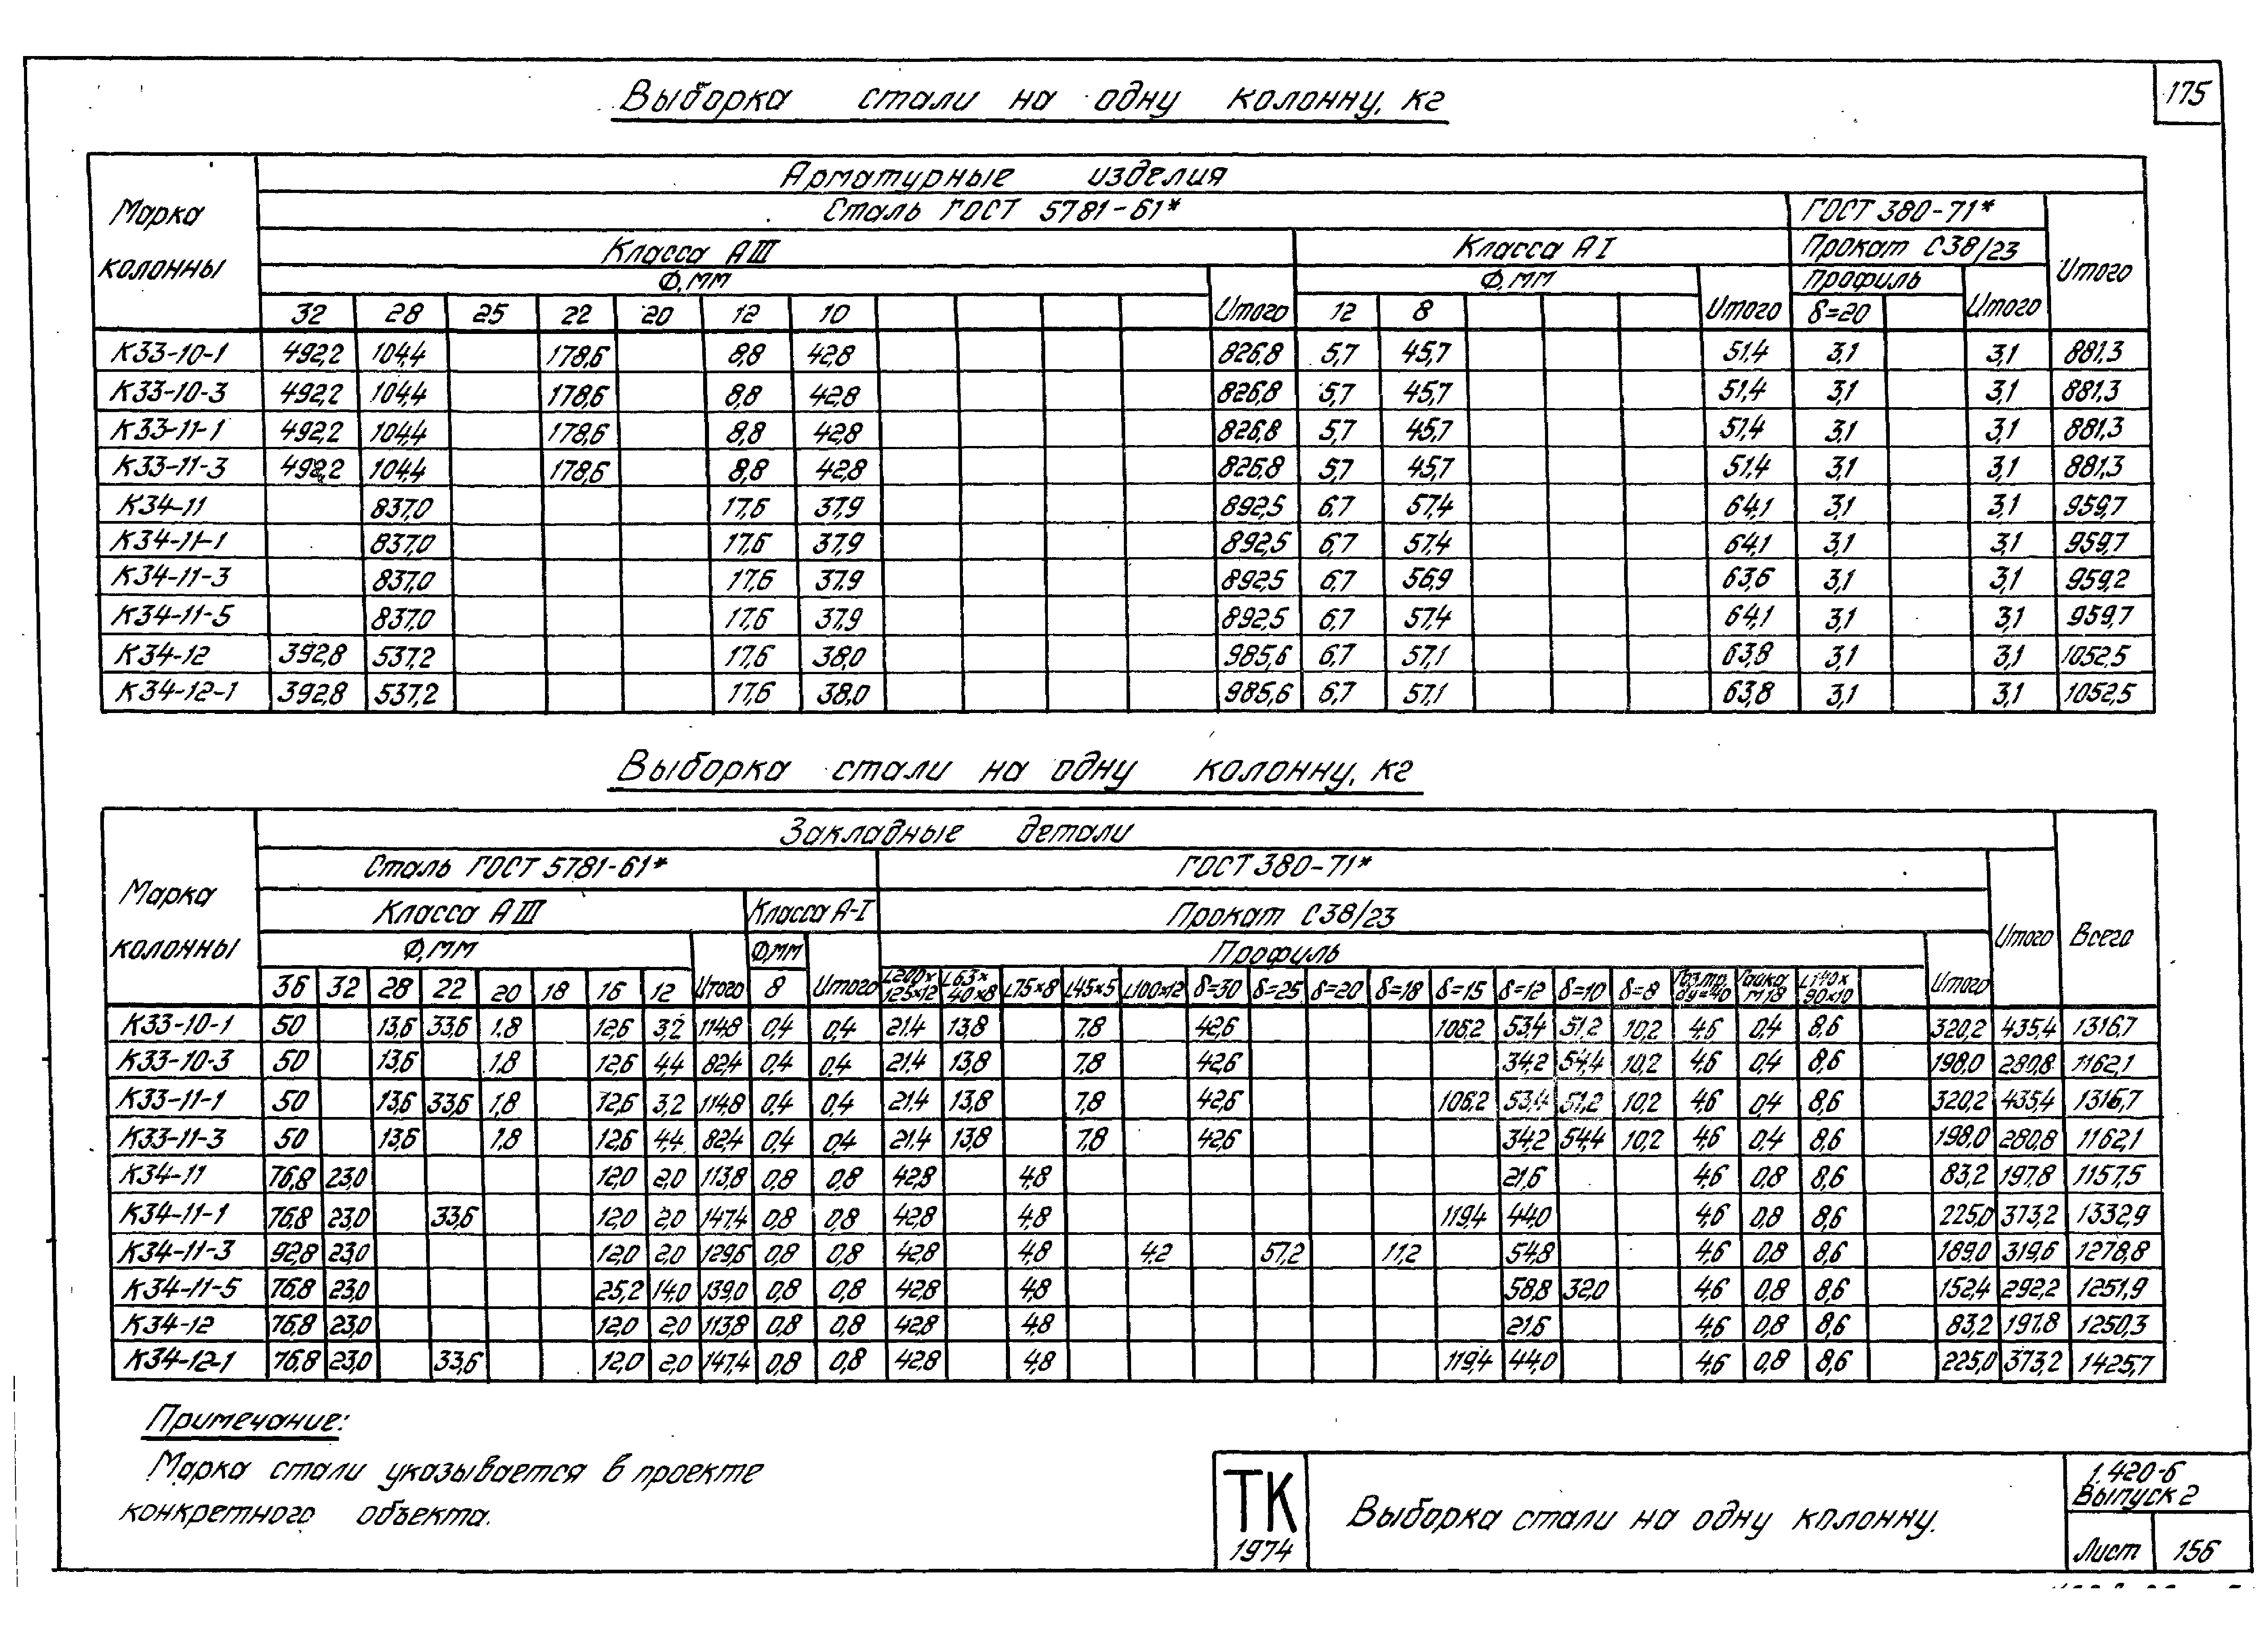 175
Выборка стали на одну колонну, кг
Марка колонны
Арматурные изделия
Сталь ГОСТ 5781-61* ГОСТ 380-71* Итого
Класса АIII Класса АI Прокат С38/23
Ф, мм Итого Ф, мм Итого Профиль Итого
32 28 25 22 20 12 10 12 8 δ=20
К33-10-1 492,2 104,4 178,6 8,8 42,8 826,8 5,7 45,7 51,4 3,1 3,1 881,3
К33-10-3 492,2 104,4 178,6 8,8 42,8 826,8 5,7 45,7 51,4 3,1 3,1 881,3
К33-11-1 492,2 104,4 178,6 8,8 42,8 826,8 5,7 45,7 51,4 3,1 3,1 881,3
К33-11-3 492,2 104,4 178,6 8,8 42,8 826,8 5,7 45,7 51,4 3,1 3,1 881,3
К34-11 837,0 17,6 37,9 892,5 6,7 57,4 64,1 3,1 3,1 959,7
К34-11-1 837,0 17,6 37,9 892,5 6,7 57,4 64,1 3,1 3,1 959,7
К34-11-3 837,0 17,6 37,9 892,5 6,7 56,9 63,6 3,1 3,1 959,2
К34-11-5 837,0 17,6 37,9 892,5 6,7 57,4 64,1 3,1 3,1 959,7
К34-12 392,8 537,2 17,6 38,0 985,6 6,7 57,1 63,8 3,1 3,1 1052,5
К34-12-1 392,8 537,2 17,6 38,0 985,6 6,7 57,1 63,8 3,1 3,1 1052,5
Выборка стали на одну колонну, кг
Марка колонны
Закладные детали Всего
Сталь ГОСТ 5781-61* ГОСТ 380-71* Итого
Класса АIII Класса А-I Прокат С38/23
Ф, мм Итого Ф, мм Итого Профиль Итого
36 32 28 22 20 18 16 12 8 L200×125×12 L63×40×8 L75×8 L45×5 L100×12 δ=30 δ=25 δ=20 δ=18 δ=15 δ=12 δ=10 δ=8 Газ.тр. dу=40 Гайка М18 L140×90×10
К33-10-1 50 13,6 33,6 1,8 12,6 3,2 114,8 0,4 0,4 21,4 13,8 7,8 42,6 106,2 53,4 51,2 10,2 4,6 0,4 8,6 320,2 435,4 1316,7
К33-10-3 50 13,6 1,8 12,6 4,4 82,4 0,4 0,4 21,4 13,8 7,8 42,6 34,2 54,4 10,2 4,6 0,4 8,6 198,0 280,8 1162,1
К33-11-1 50 13,6 33,6 1,8 12,6 3,2 114,8 0,4 0,4 21,4 13,8 7,8 42,6 106,2 53,4 51,2 10,2 4,6 0,4 8,6 320,2 435,4 1316,7
К33-11-3 50 13,6 1,8 12,6 4,4 82,4 0,4 0,4 21,4 13,8 7,8 42,6 34,2 54,4 10,2 4,6 0,4 8,6 198,0 280,8 1162,1
К34-11 76,8 23,0 12,0 2,0 113,8 0,8 0,8 42,8 4,8 21,6 4,6 0,8 8,6 83,2 197,8 1157,5
К34-11-1 76,8 23,0 33,6 12,0 2,0 147,4 0,8 0,8 42,8 4,8 119,4 44,0 4,6 0,8 8,6 225,0 373,2 1332,9
К34-11-3 92,8 23,0 12,0 2,0 129,6 0,8 0,8 42,8 4,8 4,2 57,2 11,2 54,8 4,6 0,8 8,6 189,0 319,6 1278,8
К34-11-5 76,8 23,0 25,2 14,0 139,0 0,8 0,8 42,8 4,8 58,8 32,0 4,6 0,8 8,6 152,4 292,2 1251,9
К34-12 76,8 23,0 12,0 2,0 113,8 0,8 0,8 42,8 4,8 21,6 4,6 0,8 8,6 83,2 197,8 1250,3
К34-12-1 76,8 23,0 33,6 12,0 2,0 147,4 0,8 0,8 42,8 4,8 119,4 44,0 4,6 0,8 8,6 225,0 373,2 1425,7
Примечание:
Марка стали указывается в проекте
конкретного объекта.
ТК
1974
Выборка стали на одну колонну.
1.420-6
Выпуск 2
Лист 156